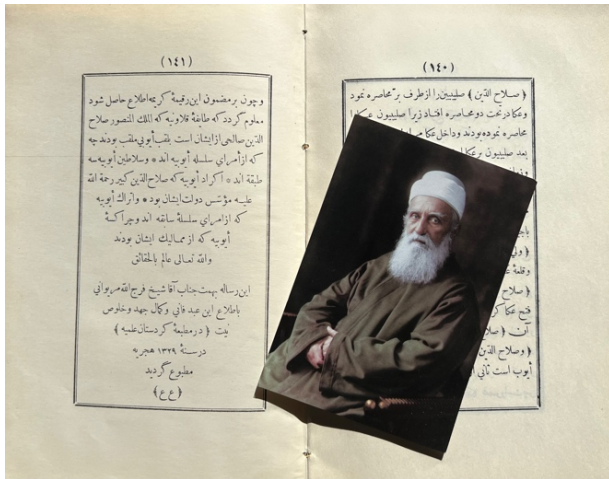 (١٤٠)
﴿ صلاح الدین ﴾ صلیبیین را از طرف بر محاصره نمود
وعکا در تحت دو محاصره افتاد زیرا صلیبیون عکا را
محاصره نموده بودند وداخل عکا
بعد صلیبیون بر عکا
﴿ صلاح
فتح عکا
آن ﴿ صلا
﴿ وصلاح الدین
أیوب است ثانی
(١٤١)
وچون بر مضمون این رقیمهٔ کریمه اطلاع حاصل شود
معلوم گردد که طائفهٔ قلاونیه که الملک المنصور صلاح
الدین صالحی از ایشان است بلقب أیوبی ملقب بودند چه
که از أمرای سلسله أیوبیه اند * وسلاطین أیوبیه سه
طبقه اند * اکراد أیوبیه که صلاح الدین کبیر رحمة الله
علیه مؤسس دولت ایشان بود * واتراک أیوبیه
که از امرای سلسلهٔ سابقه اند وچراکسهٔ
أیوبیه که از ممالیک ایشان بودند
والله تعالی عالم بالحقائق
این رساله بهمت جناب آقا شیخ فرج الله مریوانی
باطلاع این عبد فانی وکمال جهد وخلوص
نیت ﴿ در مطبعهٔ کردستان علمیه ﴾
در سنهٔ ١٣٢٩ هجریه
مطبوع گردید
﴿ ع ع ﴾